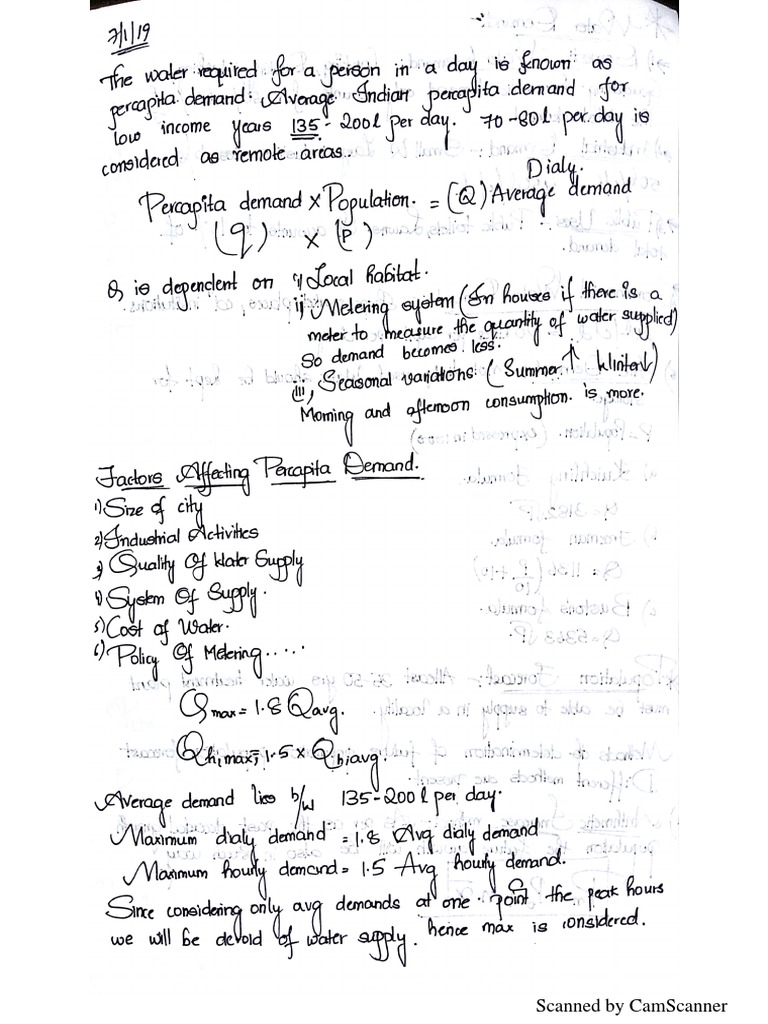 7/1/19
The water required for a person in a day is known as
percapita demand. Average Indian percapita demand for
low income years 135-200l per day. 70-80l per day is
considered as remote areas.
Dialy.
Percapita demand x Population. = (Q) Average demand
(q) x (P)
Q is dependent on i) Local habitat.
ii) Metering system (In houses if there is a
meter to measure the quantity of water supplied)
So demand becomes less.
iii, Seasonal variations: (Summer ↑ Winter↓)
Morning and afternoon consumption is more.
Factors Affecting Percapita Demand.
1) Size of city
2) Industrial Activities
3) Quality Of Water Supply
4) System Of Supply.
5) Cost of Water.
6) Policy Of Metering.....
Qmax = 1.8 Qavg.
Qh,max, = 1.5 x Qh,avg.
Average demand lies b/w 135-200 l per day.
Maximum dialy demand = 1.8 Avg dialy demand
Maximum hourly demand = 1.5 Avg hourly demand.
Since considering only avg demands at one point the peak hours
we will be devoid of water supply. hence max is considered.
Scanned by CamScanner